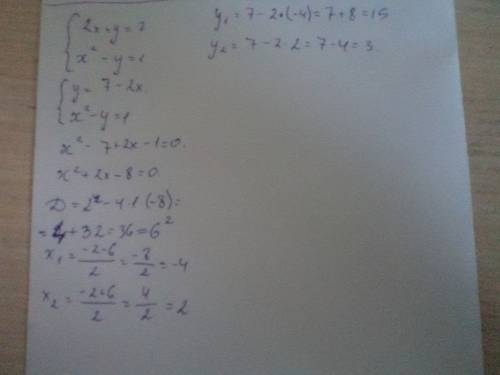 { 2x+y=7
x² - y=1
{ y= 7-2x
x²-y=1
x² - 7+2x-1=0.
x²+2x-8=0
D=2²-4·1·(-8)=
=4+32=36=6²
x₁ = -2-6/2 = -8/2 = -4
x₂ = -2+6/2 = 4/2 = 2
y₁=7-2·(-4)=7+8=15
y₂=7-2·2=7-4=3.